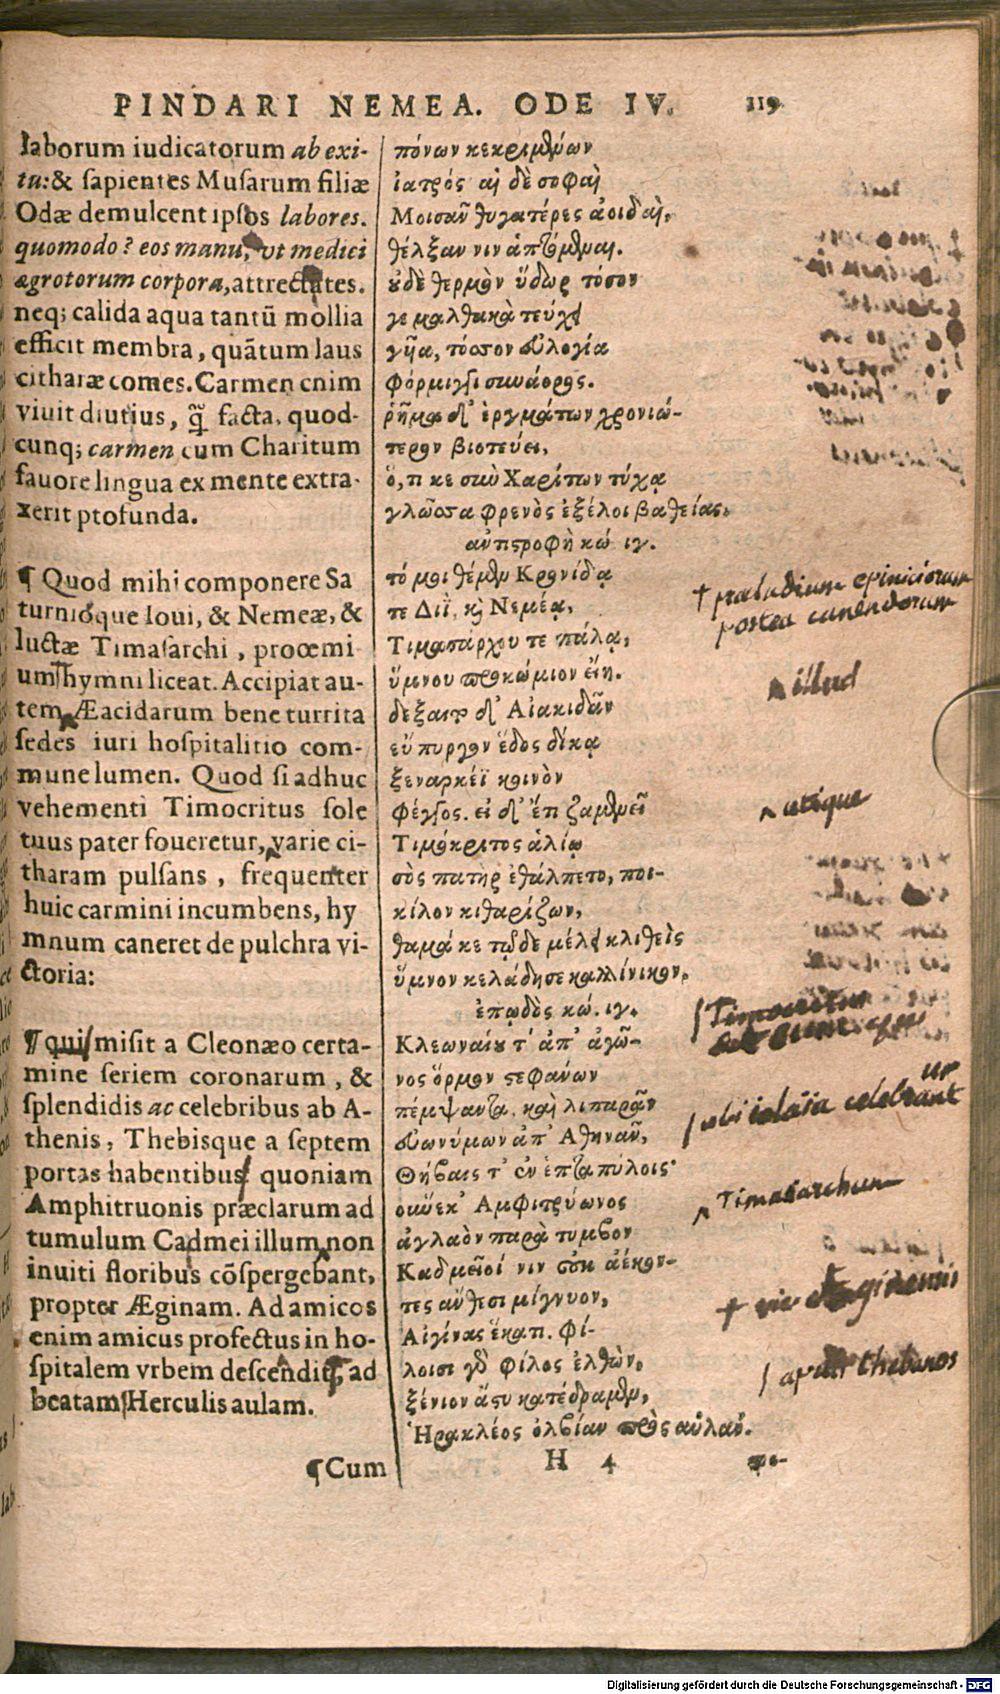 PINDARI NEMEA. ODE IV. 119
laborum iudicatorum ab exi-
tu: & sapientes Musarum filiæ
Odæ demulcent ipsos labores.
quomodo? eos manu, vt medici
ægrotorum corpora, attrectātes.
neq; calida aqua tantū mollia
efficit membra, quātum laus
citharæ comes. Carmen enim
viuit diutius, q̃ facta, quod-
cunq; carmen cum Charitum
fauore lingua ex mente extra-
xerit ptofunda.
¶ Quod mihi componere Sa
turnióque Ioui, & Nemeæ, &
luctæ Timasarchi, procemi
um hymni liceat. Accipiat au-
tem Æacidarum bene turrita
sedes iuri hospitalitio com-
mune lumen. Quod si adhuc
vehementi Timocritus sole
tuus pater foueretur, varie ci-
tharam pulsans, frequenter
huic carmini incumbens, hy
mnum caneret de pulchra vi-
ctoria:
¶ qui misit a Cleonæo certa-
mine seriem coronarum, &
splendidis ac celebribus ab A-
thenis, Thebisque a septem
portas habentibus quoniam
Amphitruonis præclarum ad
tumulum Cadmei illum non
inuiti floribus cōspergebant,
propter Æginam. Ad amicos
enim amicus profectus in ho-
spitalem vrbem descendit, ad
beatam Herculis aulam.
¶Cum
πόνων κεκριμένων
ἰατρός· αἱ δὲ σοφαὶ
Μοισᾶν θυγατέρες ἀοιδαὶ,
θέλξαν νιν ἁπτόμεναι.
οὐδὲ θερμὸν ὕδωρ τόσον
γε μαλθακὰ τεύχει
γυῖα, τόσσον εὐλογία
φόρμιγγι συνάορος.
ῥῆμα δ' ἐργμάτων χρονιώ-
τερον βιοτεύει,
ὅ, τι κε σὺν Χαρίτων τύχᾳ
γλῶσσα φρενὸς ἐξέλοι βαθείας.
ἀντιστροφὴ κώ. ιγ.
τό μοι θέμεν Κρονίδᾳ
τε Διῒ, καὶ Νεμέᾳ,
Τιμασάρχου τε πάλᾳ,
ὕμνου προκώμιον εἴη.
δέξαιτο δ' Αἰακιδᾶν
εὔπυργον ἕδος δίκᾳ
ξεναρκέϊ κοινὸν
φέγγος. εἰ δ' ἔτι ζαμενεῖ
Τιμόκριτος ἁλίῳ
σὸς πατὴρ ἐθάλπετο, ποι-
κίλον κιθαρίζων,
θαμά κε τῷδε μέλει κλιθεὶς
ὕμνον κελάδησε καλλίνικον.
ἐπῳδὸς κώ. ιγ.
Κλεωναίου τ' ἀπ' ἀγῶ-
νος ὅρμον στεφάνων
πέμψαντα. καὶ λιπαρᾶν
εὐωνύμων ἀπ' Ἀθηνᾶν,
Θήβαις τ' ἐν ἑπταπύλοις·
οὕνεκ' Ἀμφιτρύωνος
ἀγλαὸν παρὰ τύμβον
Καδμεῖοί νιν οὐκ ἀέκον-
τες ἄνθεσι μίγνυον,
Αἰγίνας ἕκατι. φί-
λοισι γὰρ φίλος ἐλθὼν,
ξένιον ἄστυ κατέδραμεν,
Ἡρακλέος ὀλβίαν πρὸς αὐλάν.
H 4
† præludium epiniciorum
postea canendorum
illud
utique
Timocritus
ubi iolaia celebrant
ur
Timasarchum
Æginensis
apud Thebanos
Digitalisierung gefördert durch die Deutsche Forschungsgemeinschaft - DFG